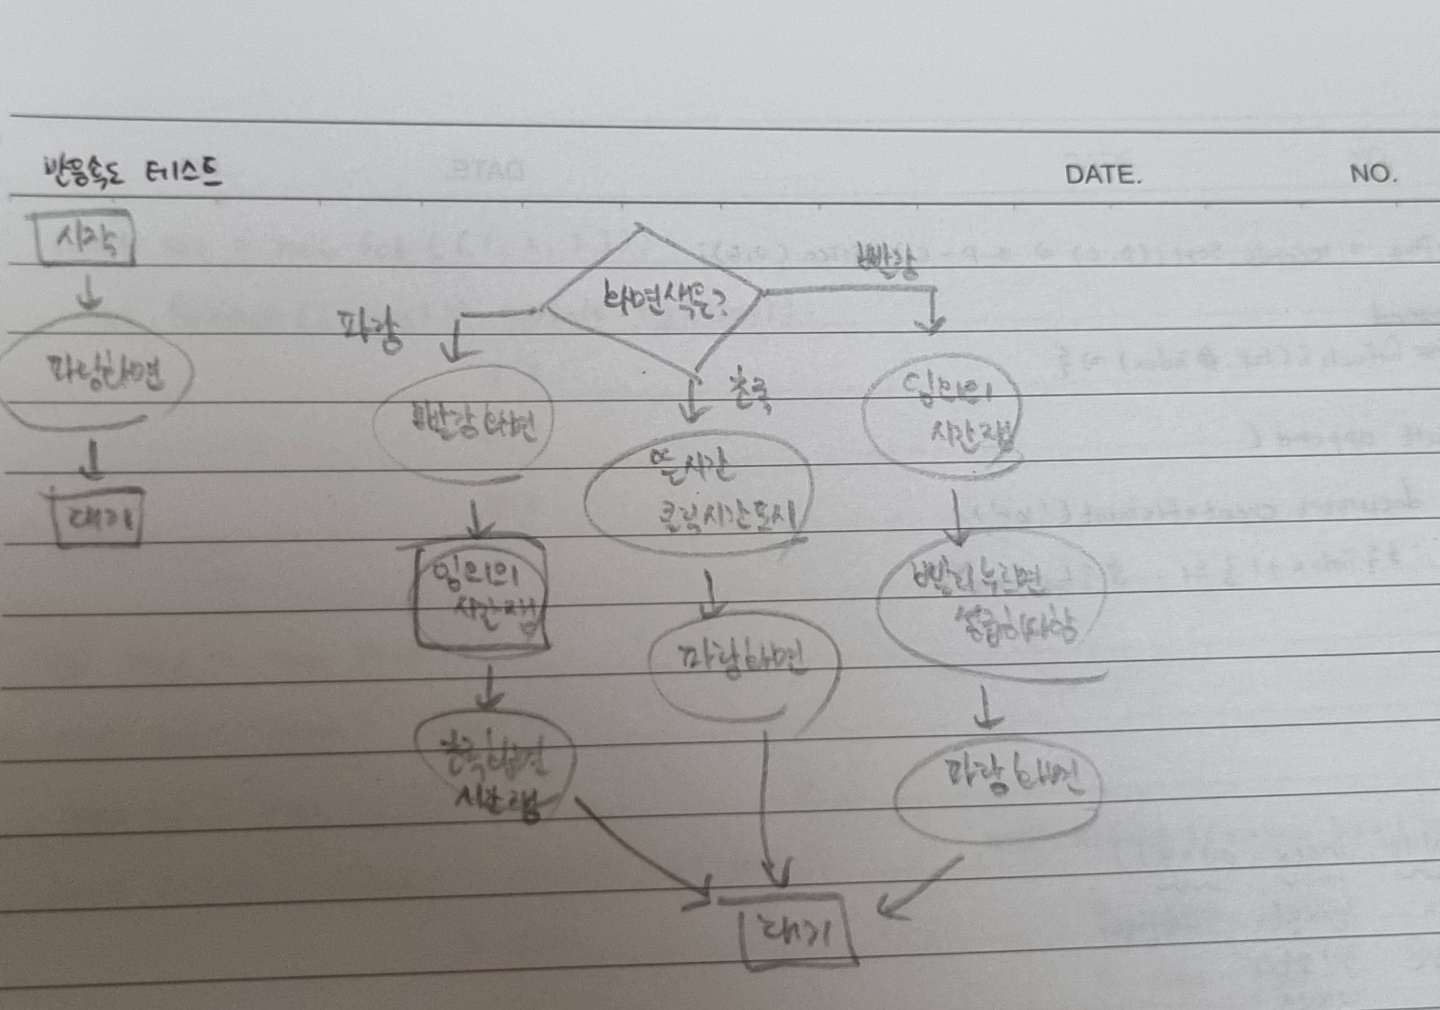 반응속도 테스트
DATE.
NO.
시작
파랑화면
대기
화면색은?
파랑
빨강화면
임의의
시간잼
초록화면
시간잼
초록
뜬시간
클릭시간표시
파랑화면
빨강
임의의
시간잼
빨리누르면
성급하다함
파랑화면
대기